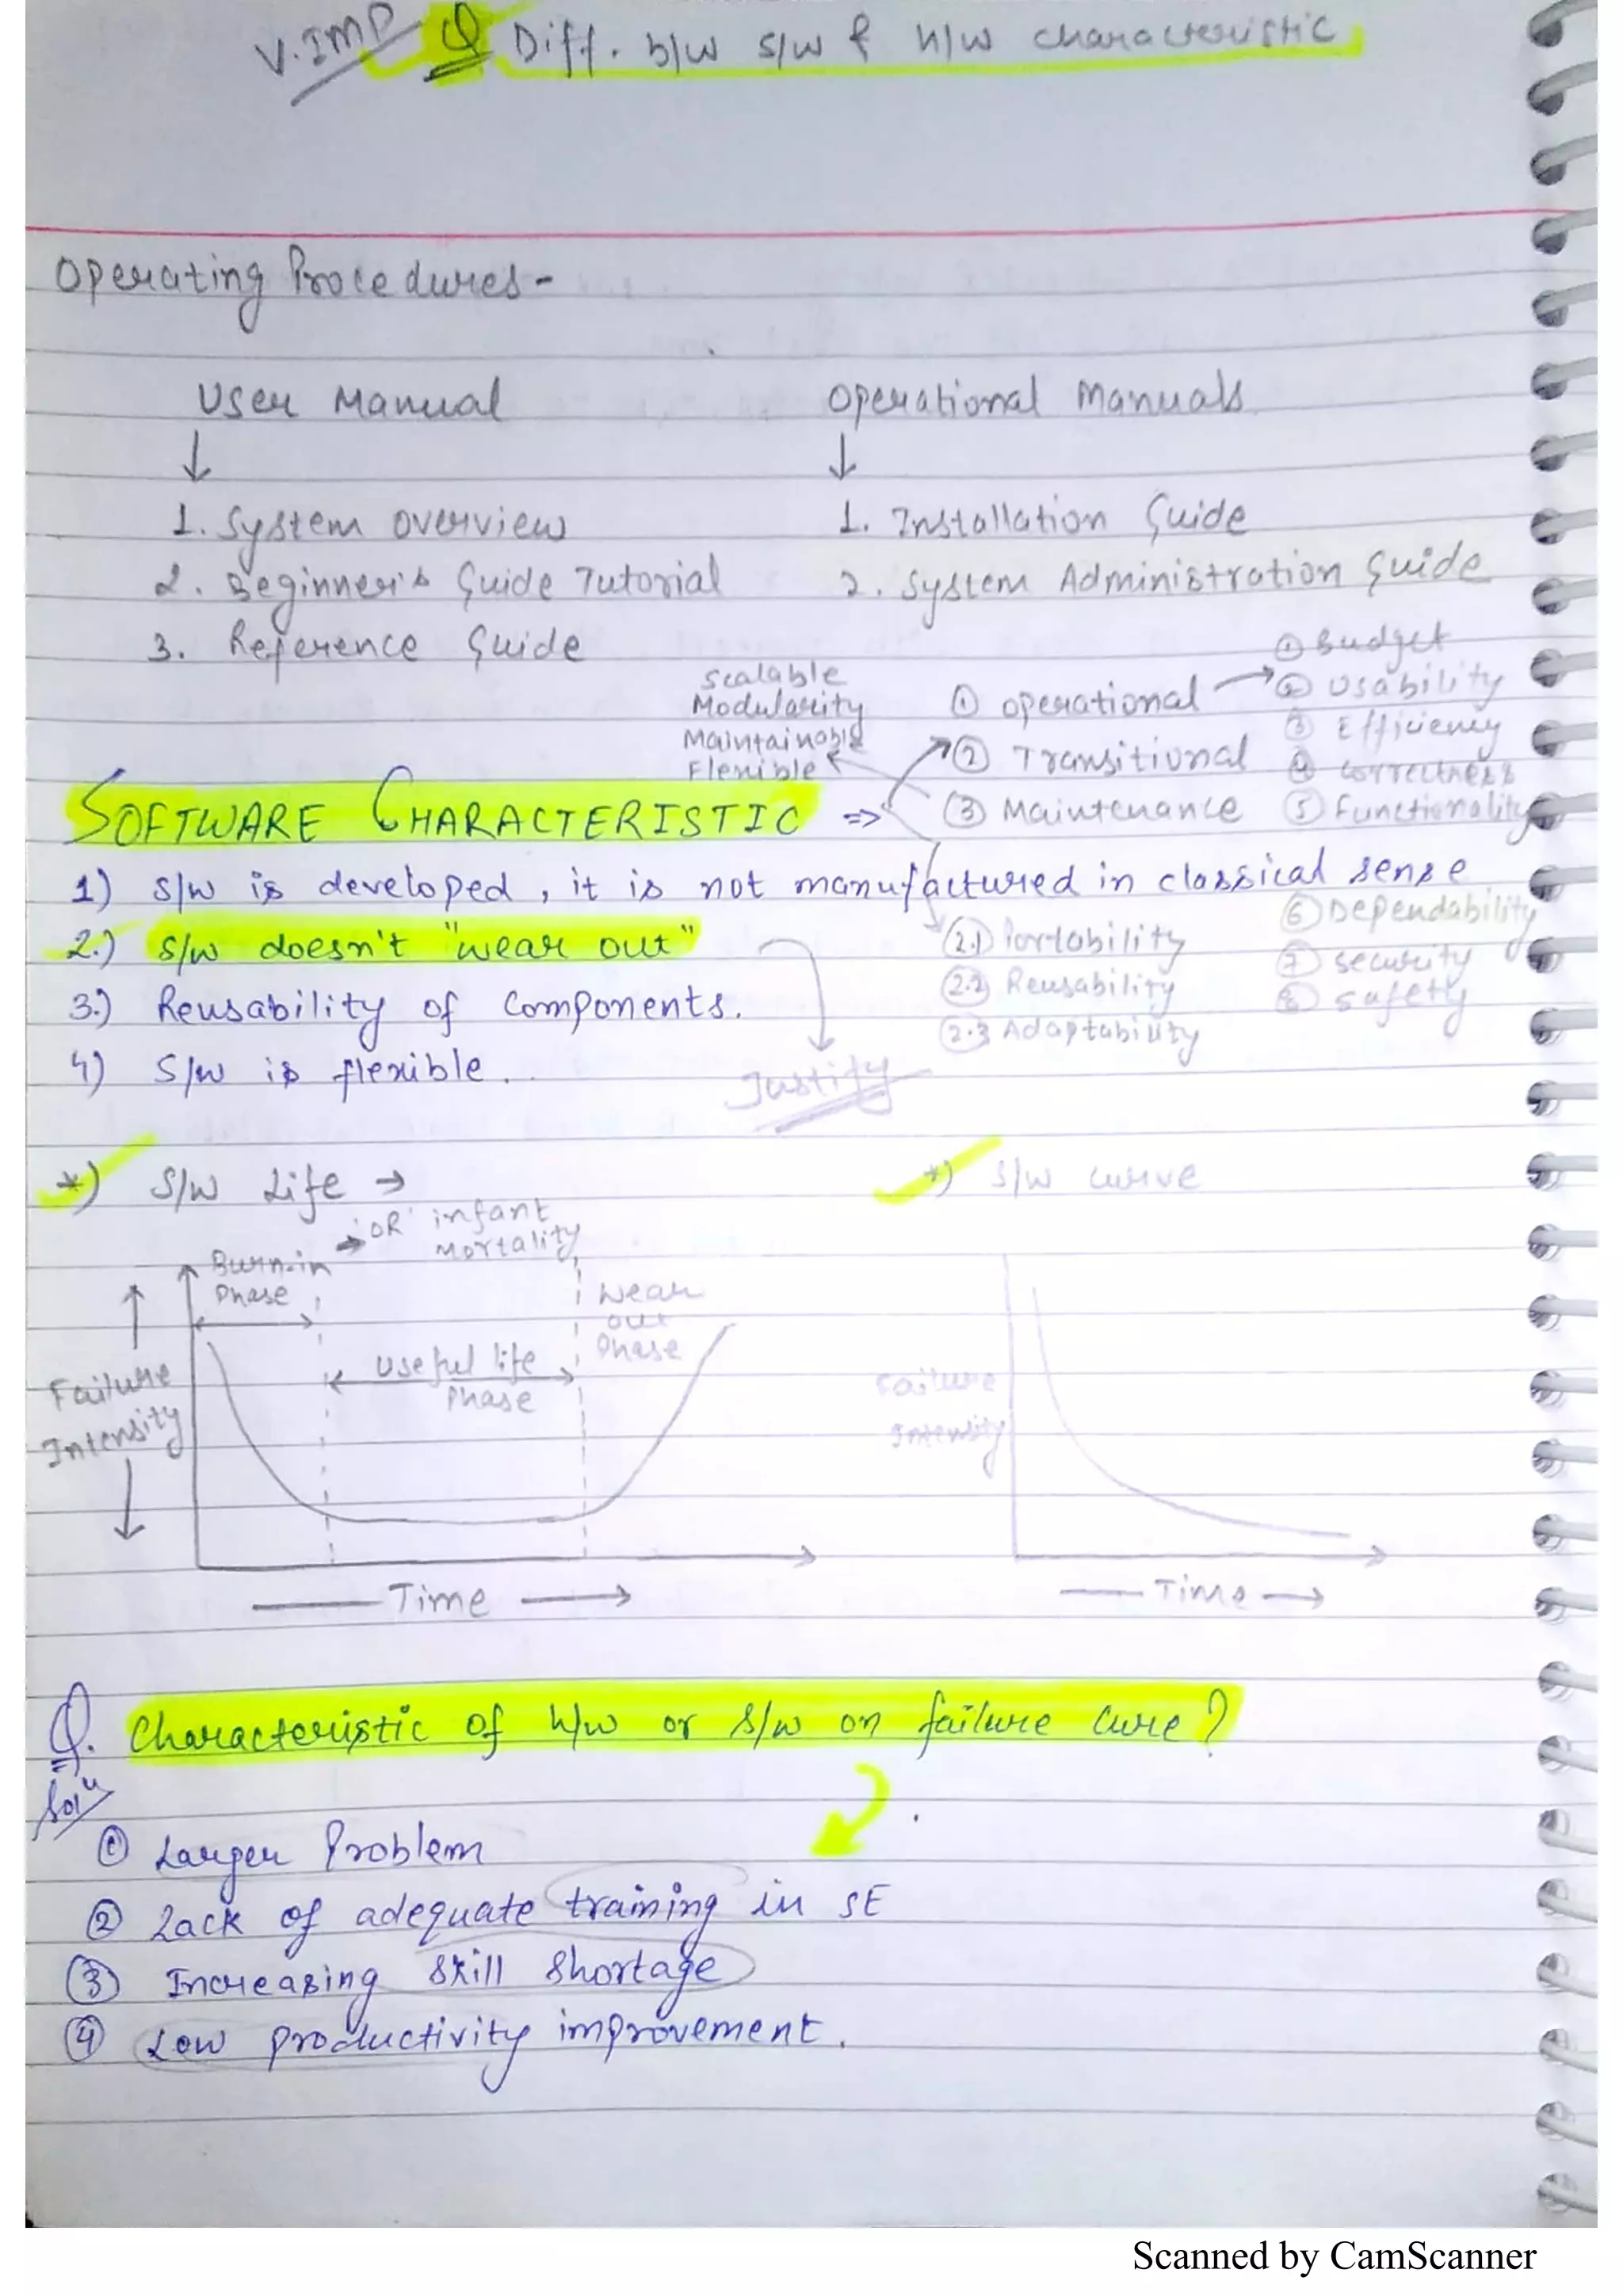 V.IMP Q Diff. b/w s/w & h/w characteristic
Operating Procedures-
User Manual
↓
1. System overview
2. Beginner's Guide Tutorial
3. Reference Guide
Operational Manuals
↓
1. Installation Guide
2. System Administration Guide
Scalable
Modularity
Maintainable
Flexible
① operational →
② Transitional
③ Maintenance
① Budget
② Usability
③ Efficiency
④ correctness
⑤ Functionality
⑥ Dependability
⑦ security
⑧ safety
SOFTWARE CHARACTERISTIC ⇒
1) s/w is developed, it is not manufactured in classical sense
2.) s/w doesn't "wear out"
3.) Reusability of components.
4) S/w is flexible.
2.1 Portability
2.2 Reusability
2.3 Adaptability
Justify
*) S/W Life →
Burn-in → 'OR' infant
Phase Mortality
Useful life
Phase
Wear
out
Phase
Failure
Intensity
Time →
*) S/W curve
Failure
Intensity
Time →
Q. Characteristic of h/w or s/w on failure cure?
Solⁿ
① Larger Problem
② Lack of adequate training in SE
③ Increasing skill shortage
④ Low productivity improvement.
Scanned by CamScanner